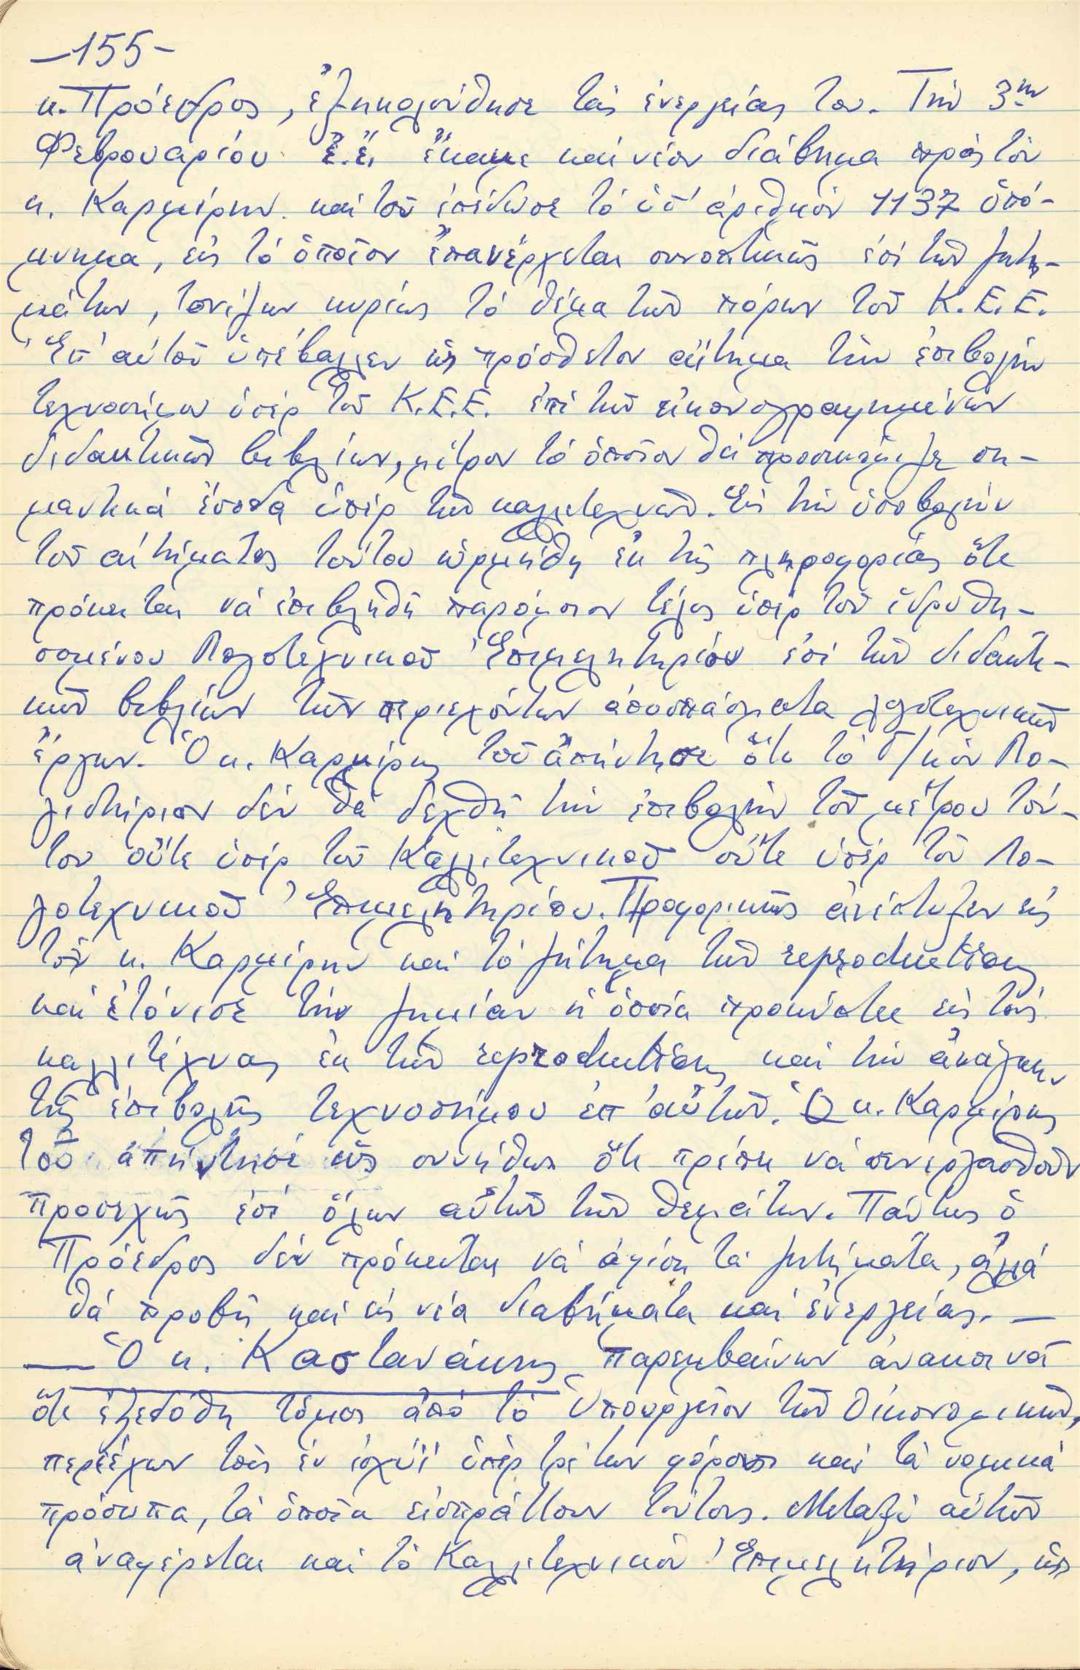 —155—
κ. Πρόεδρος, ἐξηκολούθησε τάς ἐνεργείας του. Τήν 3ην
Φεβρουαρίου ἔ.ἔ. ἔκαμε καί νέον διάβημα πρός τόν
κ. Καρμίρην καί τοῦ ἐπέδωσε τό ὑπ' ἀριθμόν 1137 ὑπό-
μνημα, εἰς τό ὁποῖον ἐπανέρχεται συνοπτικῶς ἐπί τῶν ζητη-
μάτων, τονίζων κυρίως τό θέμα τῶν πόρων τοῦ Κ.Ε.Ε.
Ἐπ' αὐτοῦ ὑπέβαλλεν ὡς πρόσθετον αἴτημα τήν ἐπιβολήν
τεχνοσήμου ὑπέρ τοῦ Κ.Ε.Ε. ἐπί τῶν εἰκονογραφημένων
διδακτικῶν βιβλίων, μέτρον τό ὁποῖον θά προσεπόριζε ση-
μαντικά ἔσοδα ὑπέρ τῶν καλλιτεχνῶν. Εἰς τήν ὑποβολήν
τοῦ αἰτήματος τούτου ὡρμήθη ἐκ τῆς πληροφορίας ὅτι
πρόκειται νά ἐπιβληθῆ παρόμοιον τέλος ὑπέρ τοῦ ἱδρυθη-
σομένου Λογοτεχνικοῦ Ἐπιμελητηρίου ἐπί τῶν διδακτι-
κῶν βιβλίων τῶν περιεχόντων ἀποσπάσματα λογοτεχνικῶν
ἔργων. Ὁ κ. Καρμίρης τοῦ ἀπήντησε ὅτι τό Γ/κόν Λο-
γιστήριον δέν θά δεχθῆ τήν ἐπιβολήν τοῦ μέτρου τού-
του οὔτε ὑπέρ τοῦ Καλλιτεχνικοῦ οὔτε ὑπέρ τοῦ Λο-
γοτεχνικοῦ Ἐπιμελητηρίου. Προφορικῶς ἀνέπτυξεν εἰς
τόν κ. Καρμίρην καί τό ζήτημα τῶν reproductions
καί ἐτόνισε τήν ζημίαν ἡ ὁποία προκύπτει εἰς τούς
καλλιτέχνας ἐκ τῶν reproductions καί τήν ἀνάγκην
τῆς ἐπιβολῆς τεχνοσήμου ἐπ' αὐτῶν. Ὁ κ. Καρμίρης
τοῦ ἀπήντησε ὡς συνήθως ὅτι πρέπει νά συνεργασθοῦν
προσεχῶς ἐπί ὅλων αὐτῶν τῶν θεμάτων. Πάντως ὁ
Πρόεδρος δέν πρόκειται νά ἀφίση τά ζητήματα, ἀλλά
θά προβῆ καί εἰς νέα διαβήματα καί ἐνεργείας. —
— Ὁ κ. Καστανάκης παρεμβαίνων ἀνακοινοῖ
ὅτι ἐξεδόθη τόμος ἀπό τό Ὑπουργεῖον τῶν Οἰκονομικῶν,
περιέχων τούς ἐν ἰσχύϊ ὑπέρ τρίτων φόρους καί τά νομικά
πρόσωπα, τά ὁποῖα εἰσπράττουν τούτους. Μεταξύ αὐτῶν
ἀναφέρεται καί τό Καλλιτεχνικόν Ἐπιμελητήριον, ὡς